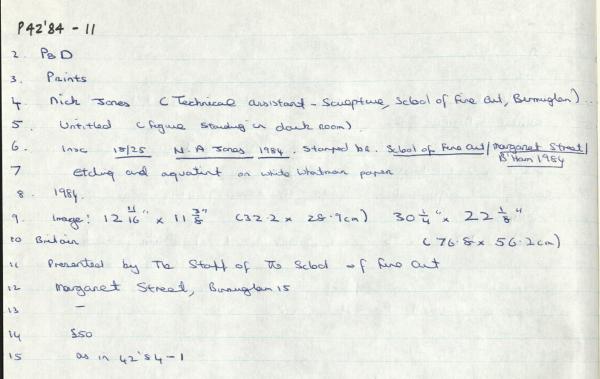 P42'84-11
2. P&D
3. Prints
4. Nick Jones (Technical assistant - Sculpture, School of Fine Art, Birmingham)..
5. Untitled (figure standing in dark room).
6. Insc 15/25 N.A Jones 1984. Stamped b.r. School of Fine Art/Margaret Street/B'Ham 1984
7 etching and aquatint on white Whatman paper
8. 1984.
9. Image: 12 11/16" x 11 3/8" (32.2 x 28.9cm) 30 1/4" x 22 1/8"
10 Britain (76.8 x 56.2cm)
11 Presented by The Staff of The School of Fine Art
12 Margaret Street, Birmingham 15
13 -
14 £50
15 as in 42'84-1